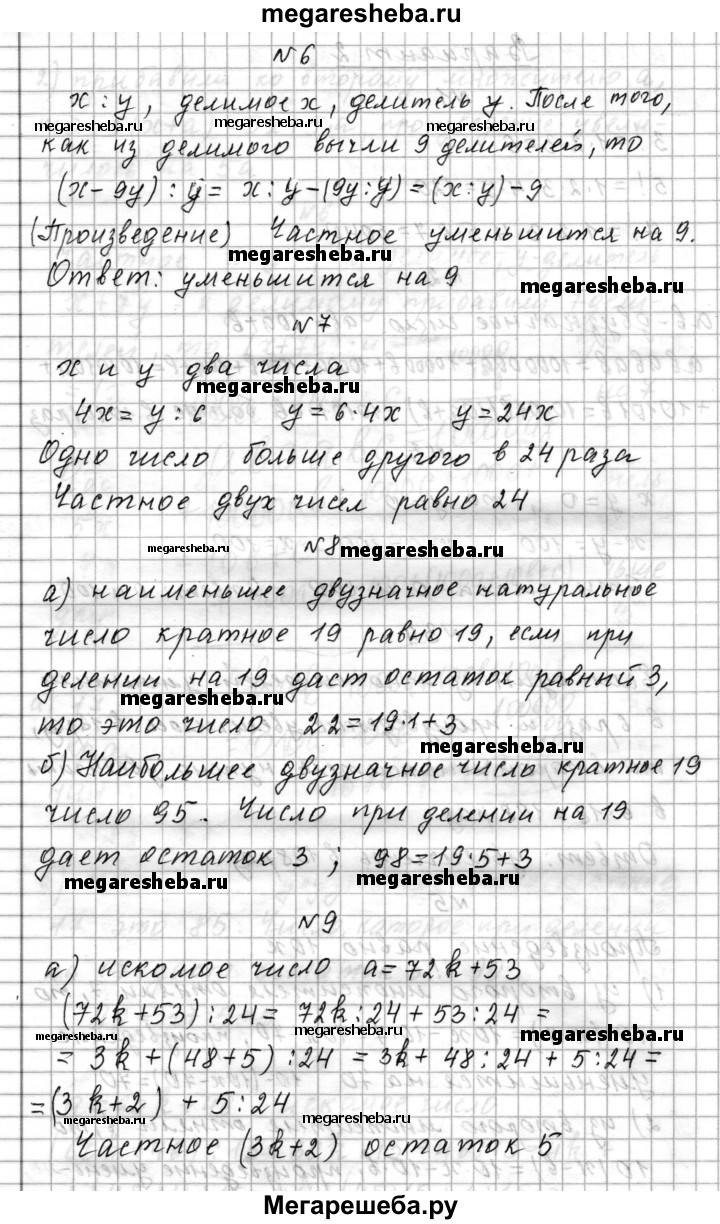 megaresheba.ru
N 6
x : y, делимое x, делитель y. После того,
megaresheba.ru megaresheba.ru megaresheba.ru
как из делимого вычли 9 делителей, то
(x - 9y) : y = x : y - (9y : y) = (x : y) - 9
(Произведение) Частное уменьшится на 9.
megaresheba.ru
Ответ: уменьшится на 9
megaresheba.ru
N 7
x и y два числа
megaresheba.ru
4x = y : 6 y = 6 · 4x y = 24x
Одно число больше другого в 24 раза
Частное двух чисел равно 24
megaresheba.ru
N 8
megaresheba.ru
а) наименьшее двузначное натуральное
число кратное 19 равно 19, если при
делении на 19 даст остаток равный 3,
megaresheba.ru
то это число 22 = 19 · 1 + 3
megaresheba.ru
б) Наибольшее двузначное число кратное 19
число 95. Число при делении на 19
дает остаток 3 ; 98 = 19 · 5 + 3
megaresheba.ru megaresheba.ru
N 9
а) искомое число a = 72k + 53
(72k + 53) : 24 = 72k : 24 + 53 : 24 =
megaresheba.ru megaresheba.ru megaresheba.ru
= 3k + (48 + 5) : 24 = 3k + 48 : 24 + 5 : 24 =
= (3k + 2) + 5 : 24
megaresheba.ru megaresheba.ru
Частное (3k + 2) остаток 5
Мегарешеба.ру